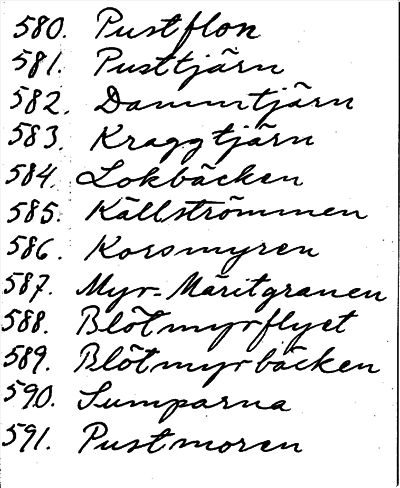 580. Pustflon
581. Pusttjärn
582. Dammtjärn
583. Kraggtjärn
584. Lokbäcken
585. Källströmmen
586. Korsmyren
587. Myr-Maritgranen
588. Blötmyrflyet
589. Blötmyrbäcken
590. Sumparna
591. Pustmoren